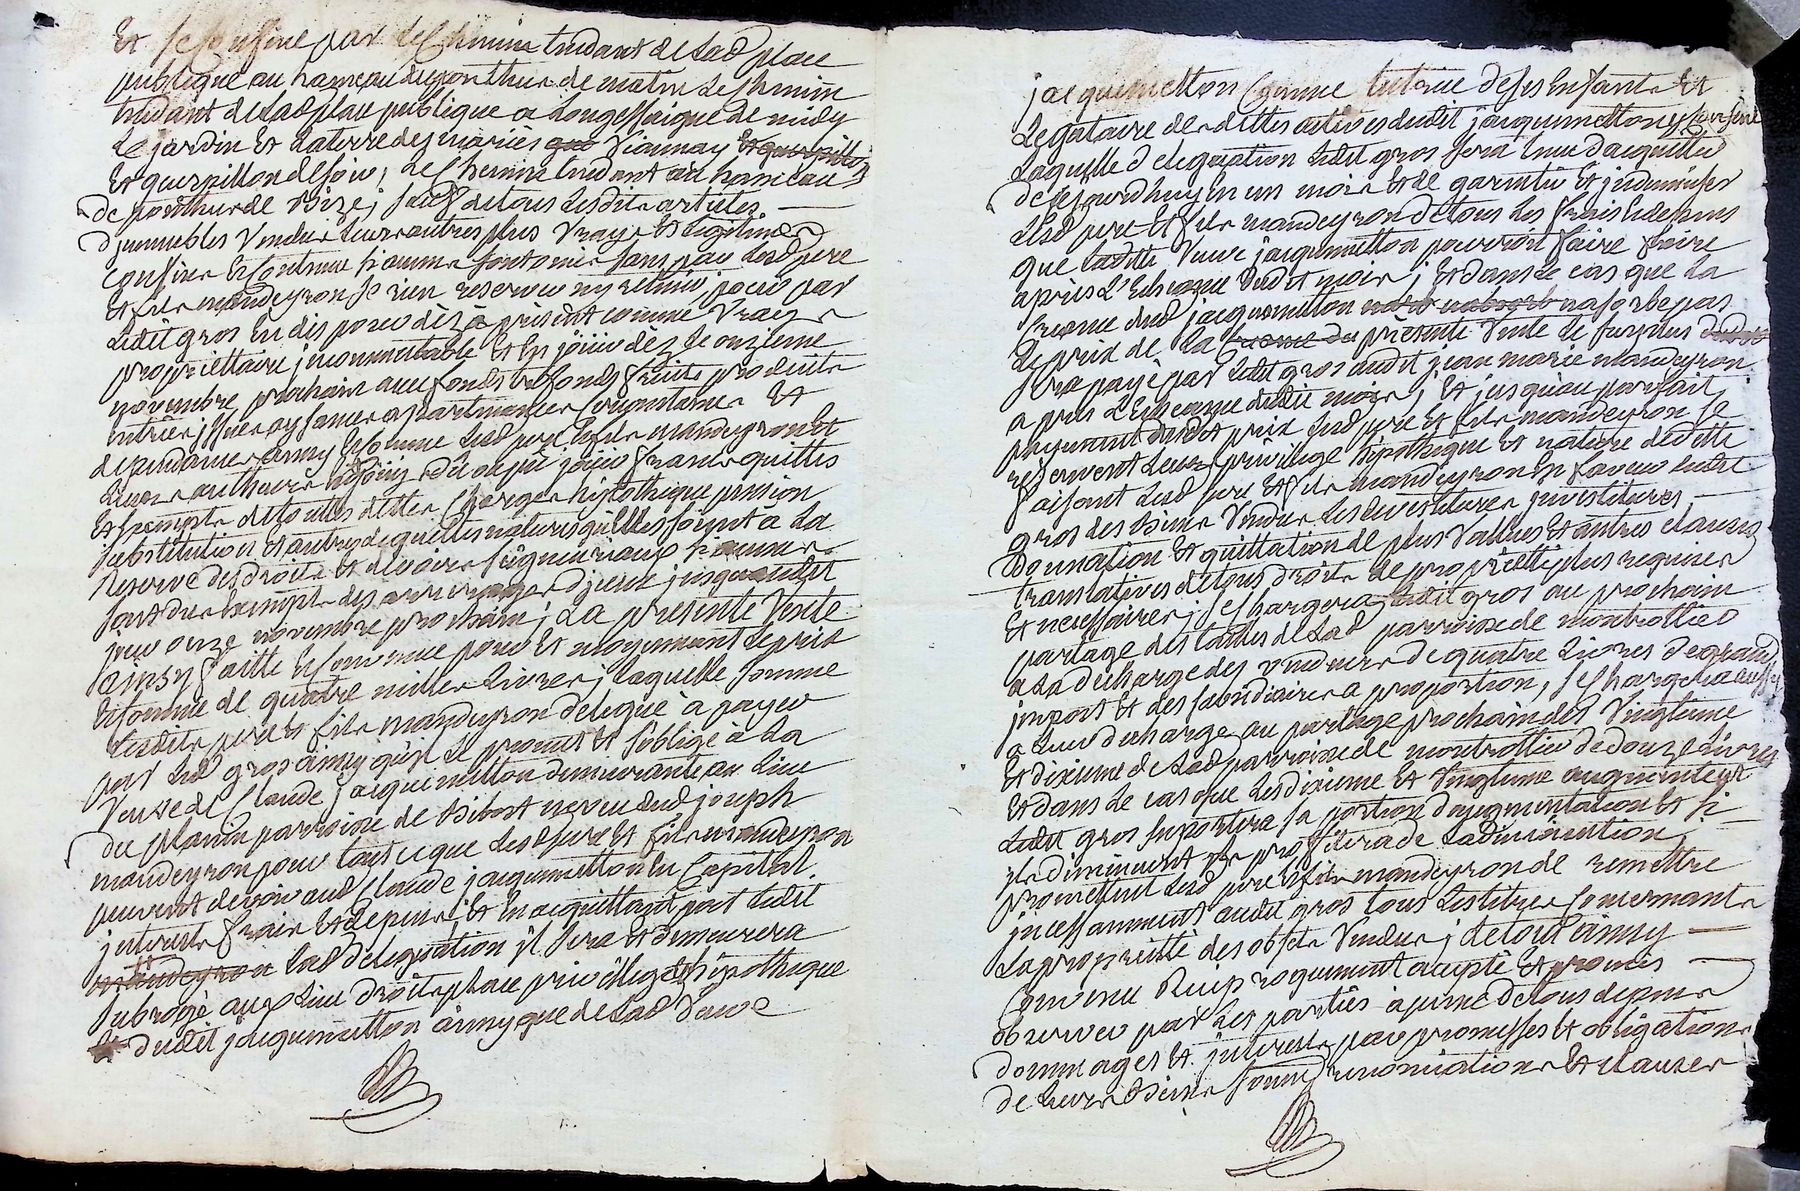 Et se confine par le Chemin tendant de lad place
publique au hameau du ponthus de matin le chemin
tendant de lad place publique a Longessaigne de midy
le jardin Et la terre des mariés Viannay
Et guerpillon de soir, le Chemin tendant au hameau
de ponthus de Bize; sauf de tous lesdits articles
d'immeubles Vendus leurs autres plus Vrays Et legitimes
confins Et Contenue comme sont onies sans par lesd pere
Et fils mandeyron se rien reserver ny retenir, pour par
ledit gros En disposer dès à présent comme Vray
propriettaire jncommutable Et En jouir dès le onzieme
novembre prochain avec fonds trefonds fruits produits
entrées jssues aysances apartenances Circonstances Et
dependances ainsy Et Comme lesd pere Et fils mandeyron Et
leurs autheurs En ont du ou pû jouir francs quittes
Et Exempts de toutes dettes Charges hipothèque pension
substitution Et autres de quelles natures qu'elles soient à la
reserve des droits Et devoirs seigneuriaux
francs Exempts des arrerages d'jceux jusqu'audit
jour onze novembre prochain; La presente Vente
ainsy faitte Et Convenue pour Et moyennant le prix
Et somme de quatre milles Livres; laquelle somme
lesdits pere Et fils mandeyron delegue à payer
par led gros ainsy qu'il le promet Et s'oblige à la
Veuve de Claude jacquemetton demeurante au lieu
du planin parroisse de Bibost neveu dud joseph
mandeyron pour tout ce que lesd pere Et fils mandeyron
peuvent devoir aud Claude jacquemetton En Capital
jnterests frais Et depens; Et En acquittant par ledit
lad delegation jl sera Et demeurera
subrogé aux Lieu droits place privilege Et hipotheque
dudit jacquemetton ainsy que de lad Veuve
jacquemetton Comme tutrice de ses Enfants Et
Legataire des dettes actives dudit jacquemetton
Laquelle delegation ledit gros sera tenu d'acquitter
de ce jourdhuy En un mois Et de garantir Et jndemniser
lesd pere Et fils mandeyron de tous les frais Et depens
que laditte Veuve jacquemetton pourroit faire faire
après L'Echeance dudit mois; Et dans le cas que la
Creance dud jacquemetton n'absorbe pas
le prix de la presente Vente le surplus
sera payé par ledit gros audit jean marie mandeyron
a près L'Echeance dudit mois; Et jusqu'au parfait
payement dudit prix lesd pere Et fils mandeyron se
reservent leurs privilege hipotheque Et nature de dette
faisant lesd pere Et fils mandeyron En faveur dudit
gros des Biens Vendus les devestitures jnvestitures
Donnation Et quittation de plus Vallues Et autres clauses
translatives de tous droits de propriétté plus requises
Et necessaires; se Chargera ledit gros au prochain
partage des tailles de lad parroisse de montrottier
a la decharge des Vendeurs de quatre Livres de grand
jmpost Et des subsidiaires a proportion, se Chargera aussy
a leur decharge au partage prochain des Vingtieme
Et dixieme de lad parroisse de montrottier de douze Livres
Et dans le cas que les dixieme Et Vingtieme augmentent
ledit gros suportera sa portion d'augmentation Et si
jls diminuent jl profitera de la diminution
promettent lesd pere Et fils mandeyron de remettre
jncessamment audit gros tous les titres Concernants
la propriétté des objets Vendus; de tout ainsy
Convenu Reciproquement accepté Et promis
observer par les parties à peine de tous depens
dommages Et jnterests par promesses Et obligations
de leurs Biens soumis renonciations Et clauses